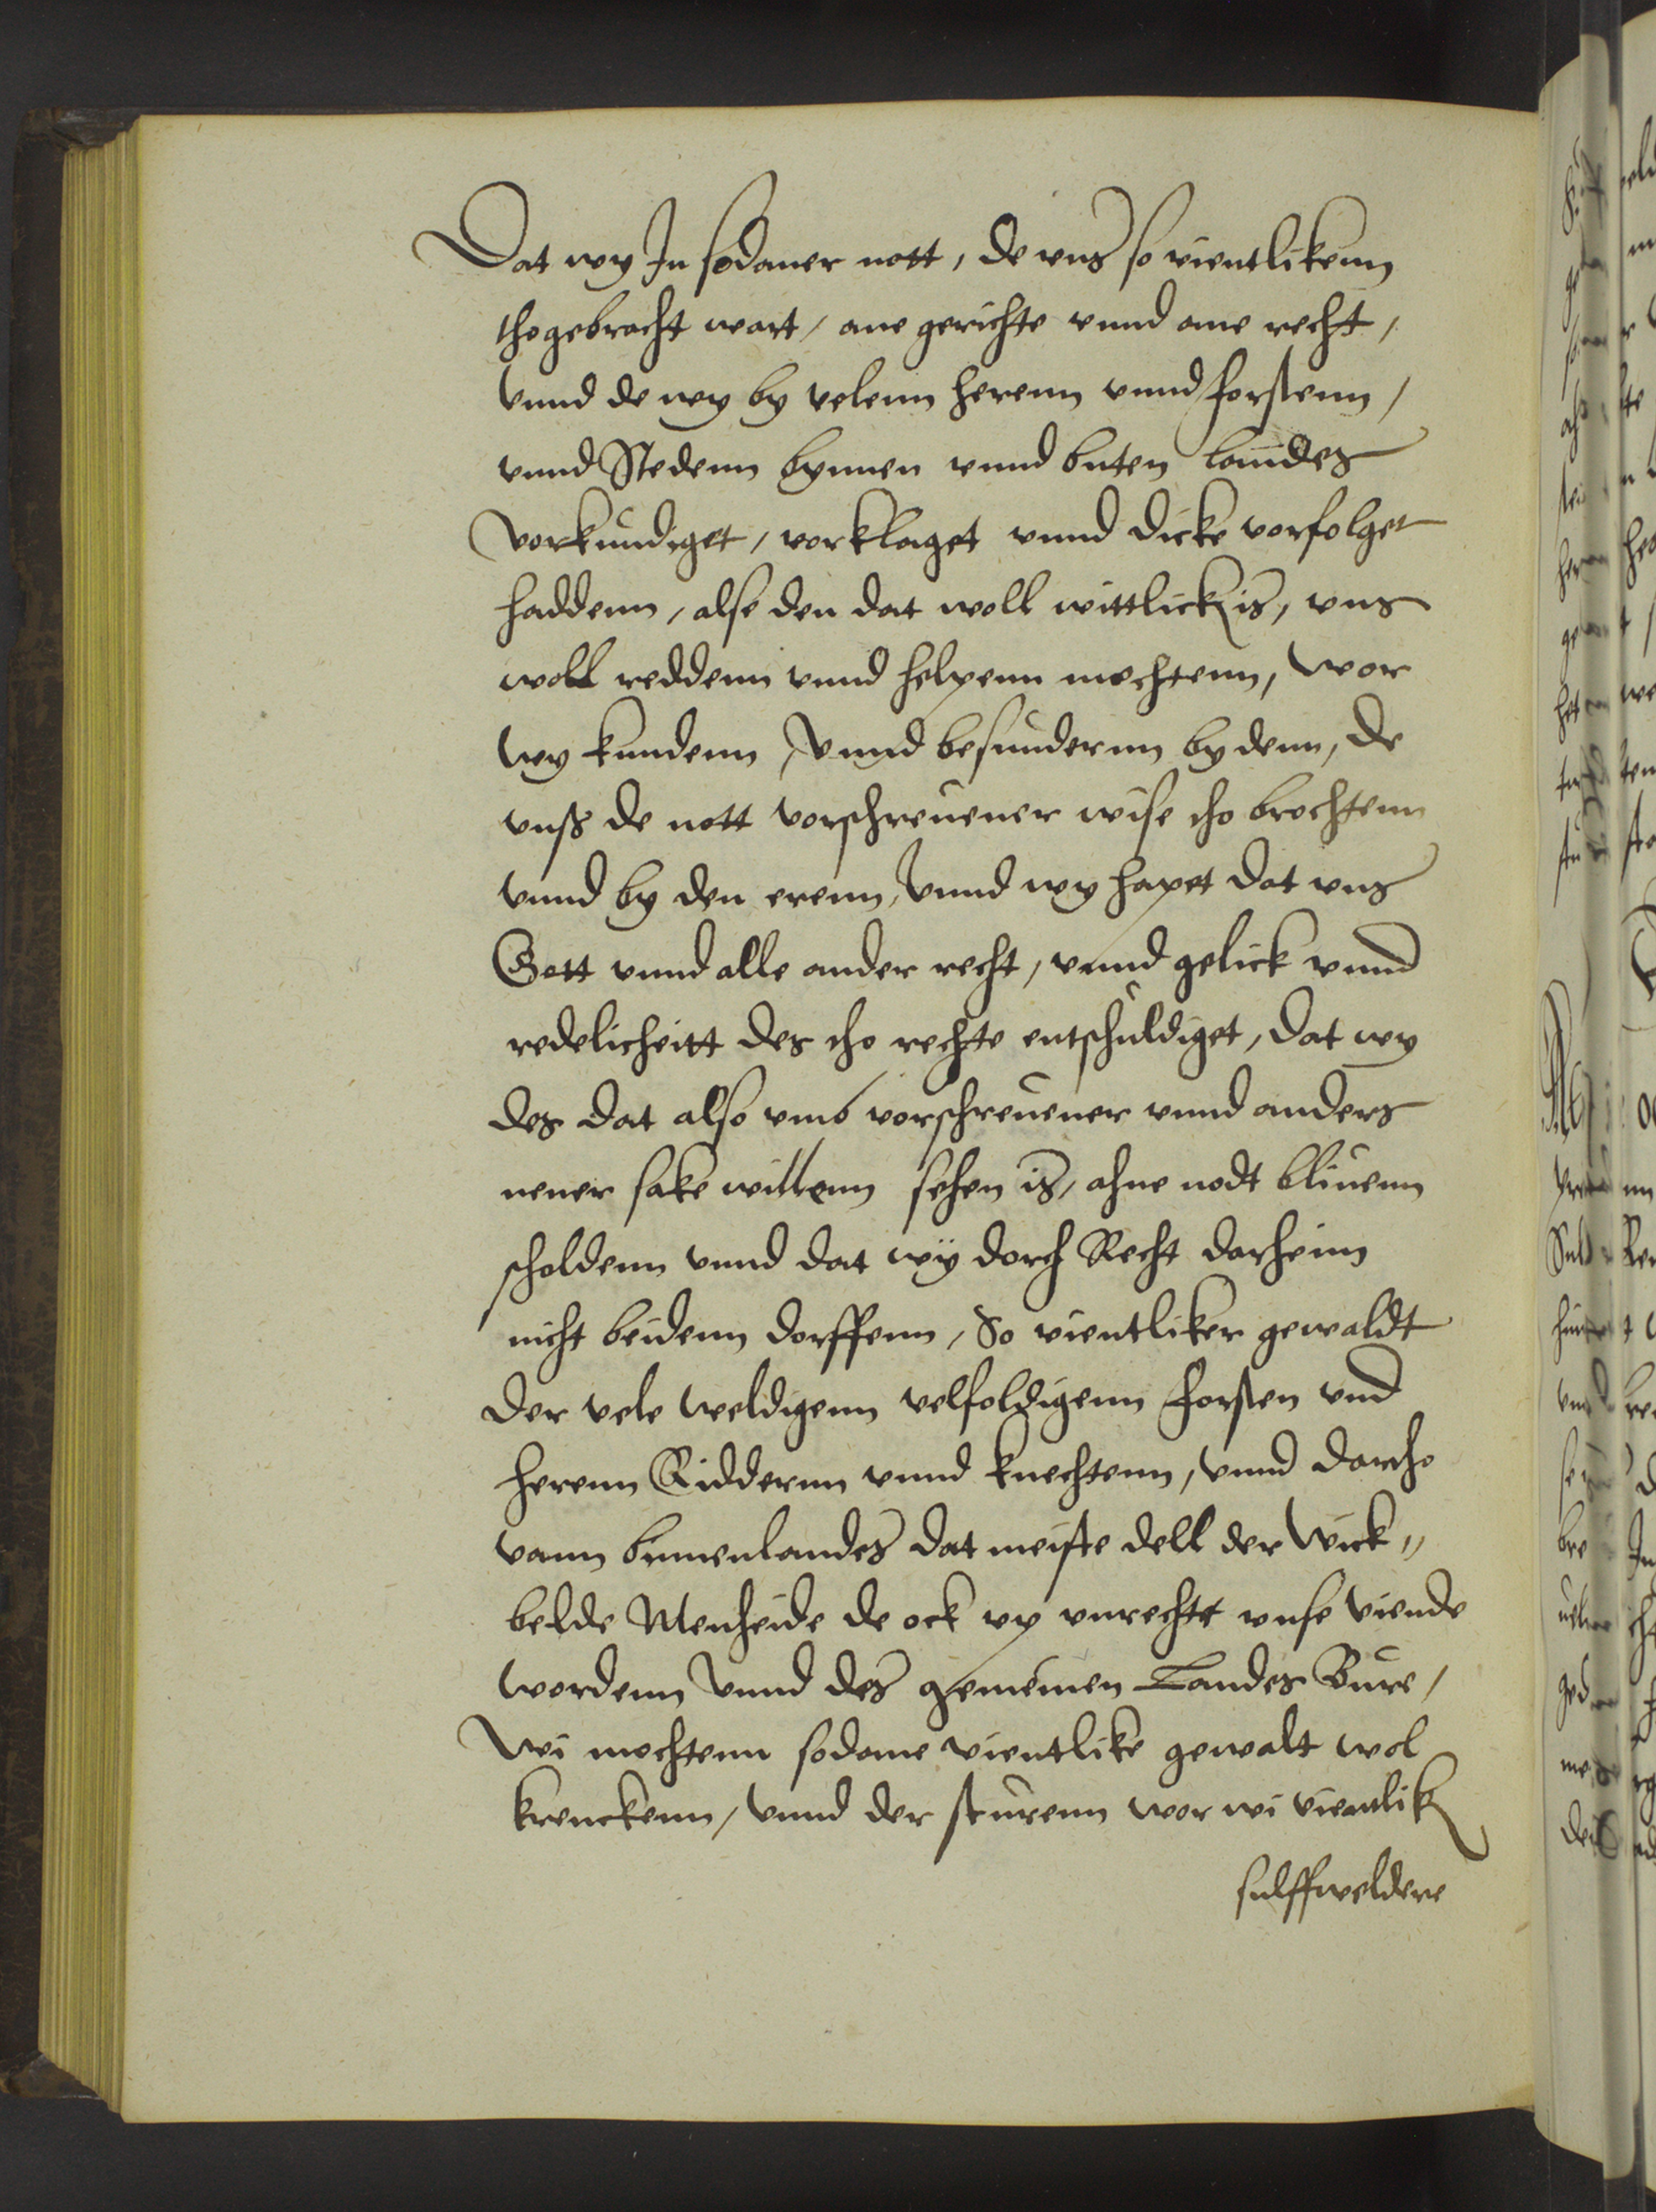 Dat wy In sodaner nott, de vns so vientlikenn
thogebracht wart / ane gerichte vnnd ane recht /
vnnd de wy by velenn herenn vnnd forstenn /
vnnd Stedenn bynnen vnnd buten landes
vorkundiget / vorklaget vnnd dicke vorfolget
haddenn, alse den dat woll wittlick is, vns
woll reddenn vnnd helpenn mochtenn, wor
wy kundenn / vnnd besundernn by denn, de
vnß de nott vorschreuener wise tho brochtenn
vnnd by den erenn, vnnd wy hapet dat vns
Gott vnnd alle ander recht, vnnd gelick vnnd
redelicheitt des tho rechte entschuldiget, dat wy
des dat also vmb vorschreuener vnnd anders
nener sake willenn sehen is, ahne nodt bliuenn
scholdenn vnnd dat wÿ dorch Recht darheim
nicht beidenn dorffenn, So vientliker gewaldt
der vele weldigenn velfoldigenn forsten vnd
herenn Riddernn vnnd knechtenn, vnnd dartho
vann binnenlandes dat meiste dell der Wick„
belde Menheide de ock vp vnrechte vnse viende
wordenn vnnd des gemeinen Landes Bure /
Wi mochtenn sodane vientlike gewalt wol
krenckenn / vnnd der sturenn wor wi vientlik
sulffweldere